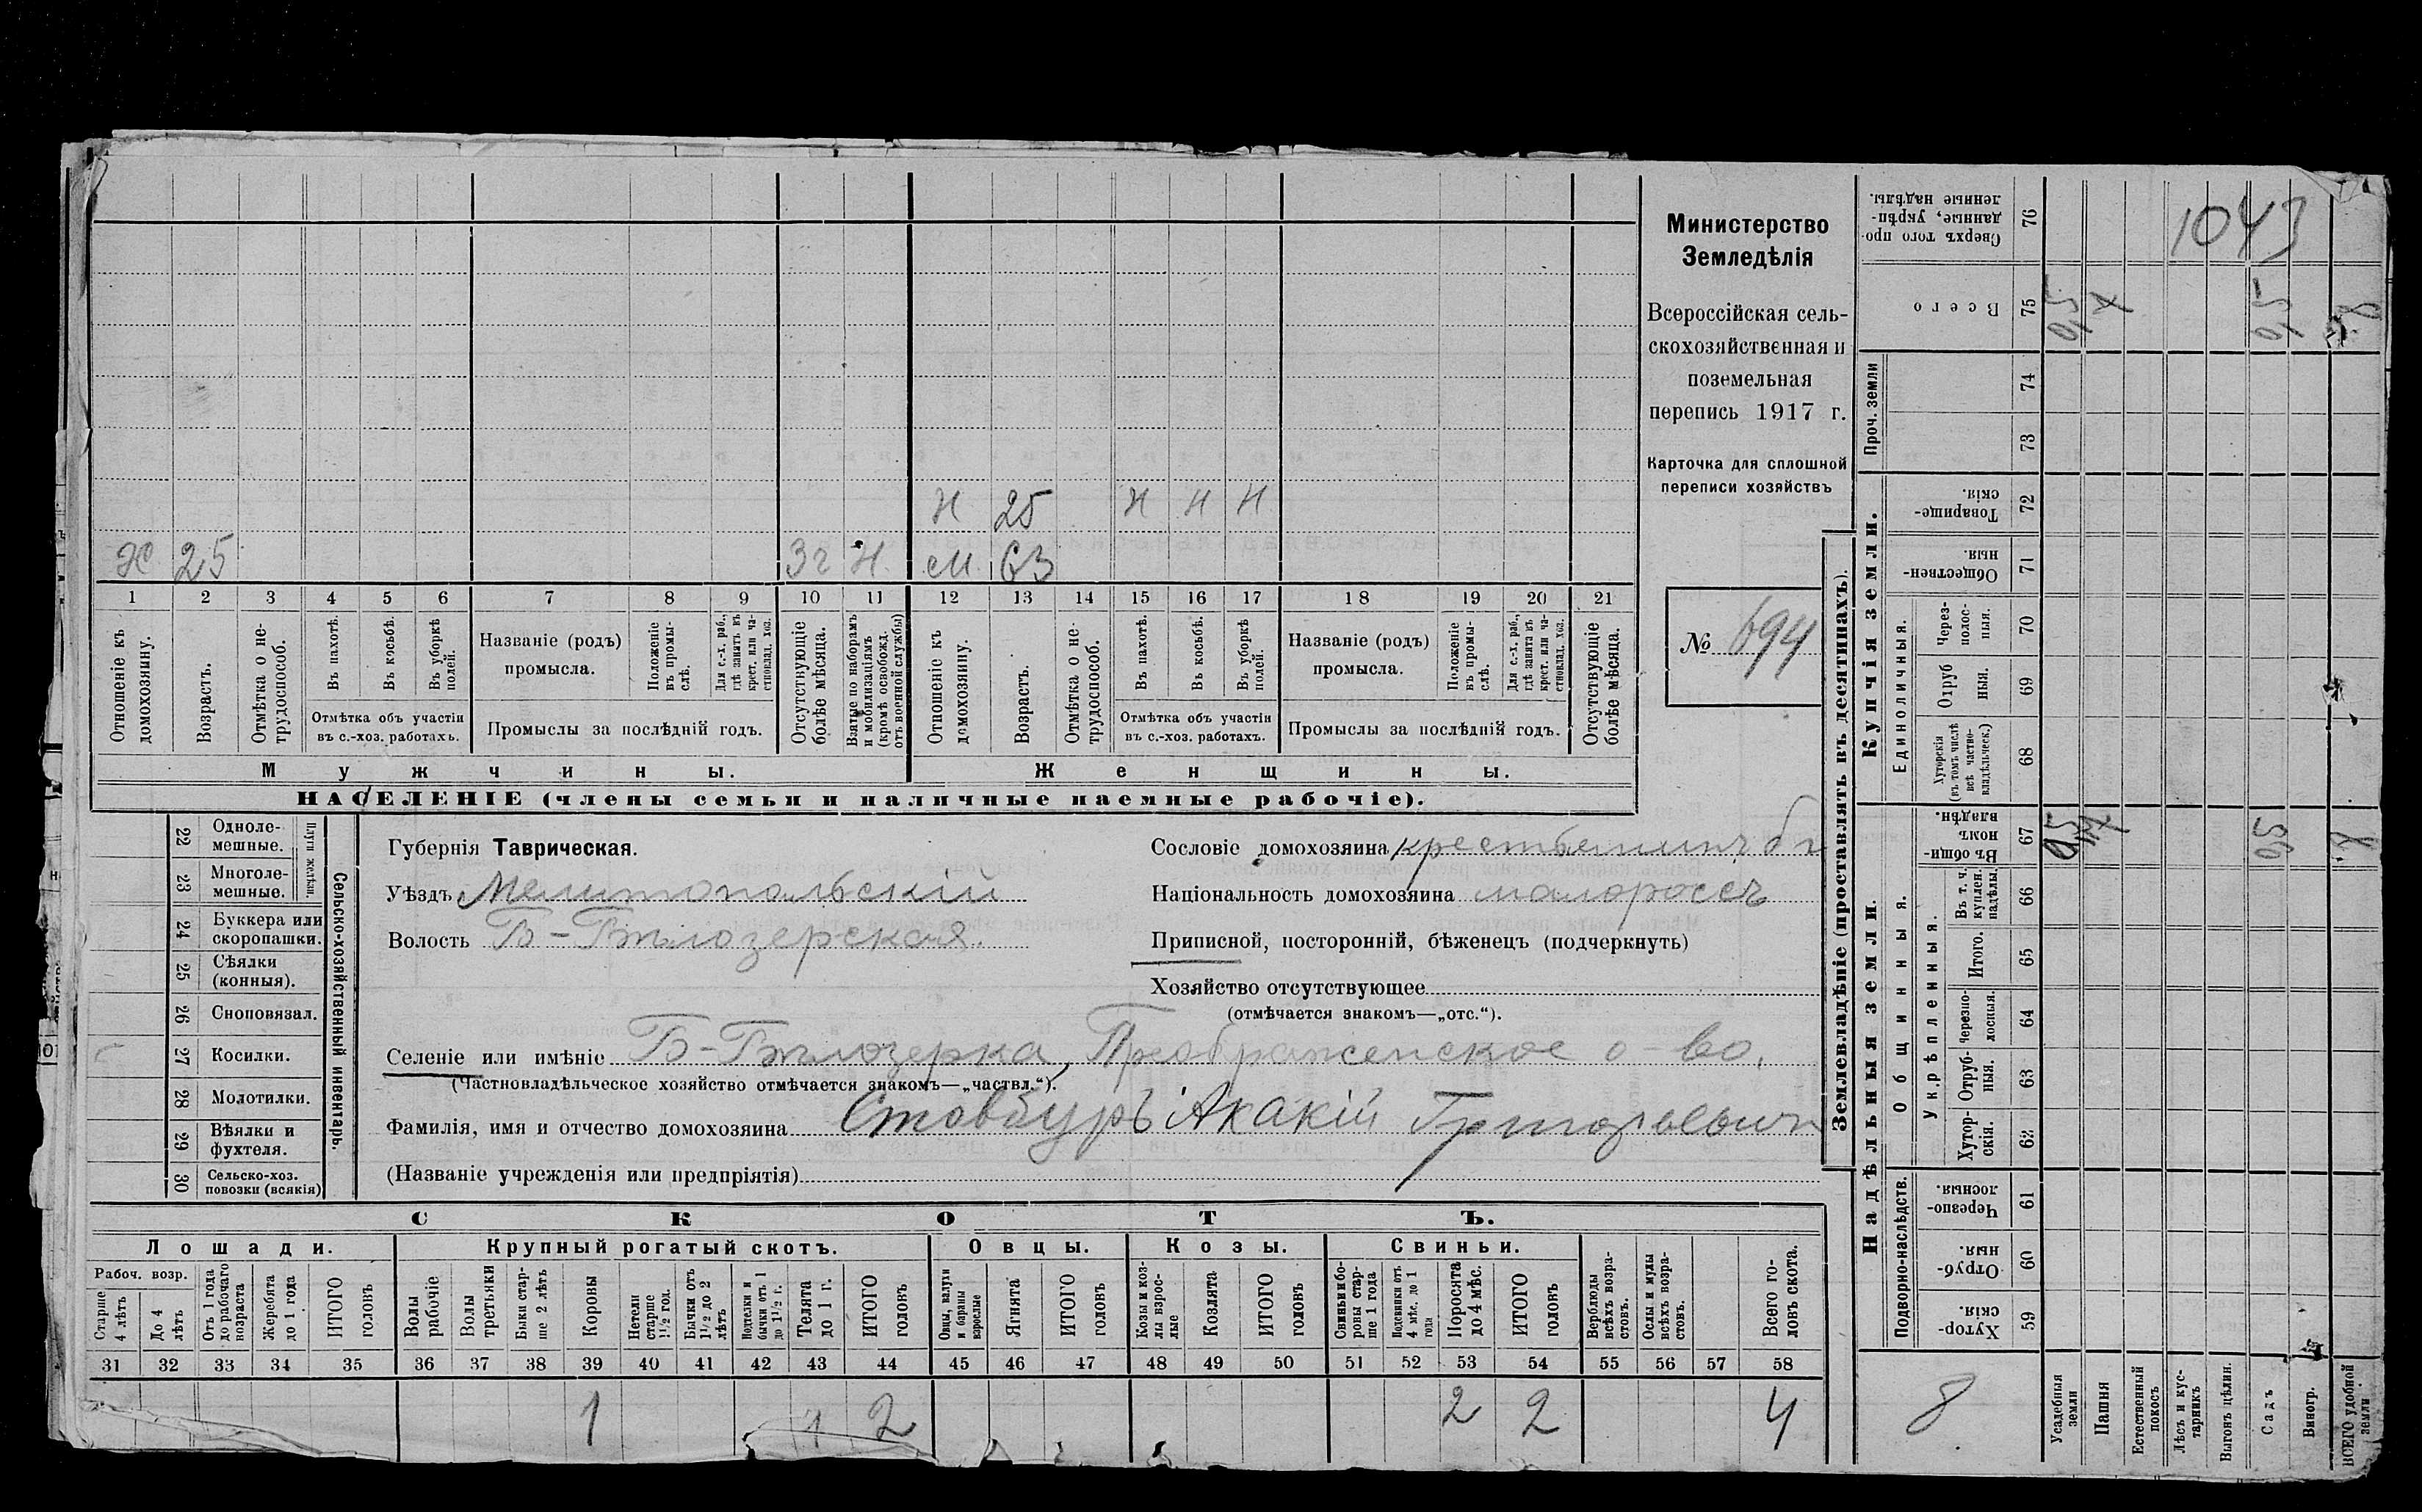 Министерство
Земледѣлія
Всероссійская сель-
скохозяйственная и
поземельная
перепись 1917 г.
Карточка для сплошной
переписи хозяйствъ
№ 694
1043
Н 25 Н Н Н
Х 25 3 г Н. М 63
1 2 3 4 5 6 7 8 9 10 11 12 13 14 15 16 17 18 19 20 21
Отношеніе къ домохозяину.
Возрастъ.
Отмѣтка о не-трудоспособ.
Въ пахотѣ.
Въ косьбѣ.
Въ уборкѣ полей.
Отмѣтка объ участіи
въ с.-хоз. работахъ.
Названіе (родъ)
промысла.
Положеніе въ промы-слѣ.
Для с.-х. раб., гдѣ занятъ въ крест. или ча-стновлад. хоз.
Промыслы за послѣдній годъ.
Отсутствующіе болѣе мѣсяца.
Взятые по наборамъ и мобилизаціямъ (кромѣ освобожд. отъ военной службы)
Отношеніе къ домохозяину.
Возрастъ.
Отмѣтка о не-трудоспособ.
Въ пахотѣ.
Въ косьбѣ.
Въ уборкѣ полей.
Отмѣтка объ участіи
въ с.-хоз. работахъ.
Названіе (родъ)
промысла.
Положеніе въ промы-слѣ.
Для с.-х. раб., гдѣ занятъ въ крест. или ча-стновлад. хоз.
Промыслы за послѣдній годъ.
Отсутствующіе болѣе мѣсяца.
Мужчины. Женщины.
НАСЕЛЕНІЕ (члены семьи и наличные наемные рабочіе).
Сельско-хозяйственный инвентарь.
Плуги желѣзн.
22 Одноле-мешные.
23 Многоле-мешные.
24 Буккера или скоропашки.
25 Сѣялки (конныя).
26 Сноповязал.
27 Косилки.
28 Молотилки.
29 Вѣялки и фухтеля.
30 Сельско-хоз. повозки (всякія)
Губернія Таврическая.
Уѣздъ Мелитопольскій
Волость Б-Бѣлозерская.
Сословіе домохозяина крестьянинъ
Національность домохозяина малороссъ
Приписной, посторонній, бѣженецъ (подчеркнуть)
Хозяйство отсутствующее
(отмѣчается знакомъ—„отс.“).
Селеніе или имѣніе Б-Бѣлозерка, Преображенское о-во.
(Частновладѣльческое хозяйство отмѣчается знакомъ—„частвл.“).
Фамилія, имя и отчество домохозяина Стовбуръ Акакій Григорьевич
(Названіе учрежденія или предпріятія)
СКОТЪ.
Лошади. Крупный рогатый скотъ. Овцы. Козы. Свиньи.
Рабоч. возр.
Старше 4 лѣтъ
До 4 лѣтъ
Отъ 1 года до рабочаго возраста
Жеребята до 1 года
ИТОГО головъ
Волы рабочіе
Волы третьяки
Быки стар-ше 2 лѣтъ
Коровы
Нетели старше 1½ год.
Бычки отъ 1½ до 2 лѣтъ
Подтелки и бычки отъ 1 до 1½ г.
Телята до 1 г.
ИТОГО головъ
Овцы, валухи и бараны взрослые
Ягнята
ИТОГО головъ
Козы и коз-лы взрос-лые
Козлята
ИТОГО головъ
Свиньи и бо-ровы стар-ше 1 года
Подсвинки отъ 4 мѣс. до 1 года
Поросята до 4 мѣс.
ИТОГО головъ
Верблюды всѣхъ возра-стовъ.
Ослы и мулы всѣхъ возра-стовъ.
Всего го-ловъ скота.
31 32 33 34 35 36 37 38 39 40 41 42 43 44 45 46 47 48 49 50 51 52 53 54 55 56 57 58
1 1 2 2 2 4
Землевладѣніе (проставлять въ десятинахъ).
Надѣльныя земли. Купчія земли. Проч. земли
Подворно-наслѣдств. Общинныя. Укрѣпленныя. Единоличныя.
Хутор-скія. 59
Отруб-ныя. 60
Черезпо-лосныя. 61
Хутор-скія. 62
Отруб-ныя. 63
Черезпо-лосныя. 64
Итого. 65
Въ т. ч. куплен. надѣлы. 66
Въ общи-номъ владѣн. 67
Хуторскія (въ томъ числѣ всѣ частно-владѣльческ.) 68
Отруб ныя. 69
Через-полос-ныя. 70
Обществен-ныя. 71
Товарище-скія. 72
73
74
Всего 75
Сверхъ того про-данные, укрѣп-ленные надѣлы. 76
Усадебныя земли
Пашня
Естественный покосъ
Лѣсъ и кус-тарникъ
Выгонъ цѣлин.
Садъ
Виногр.
ВСЕГО удобной земли
0,5
0,5 8
0,5
0,5 8
8